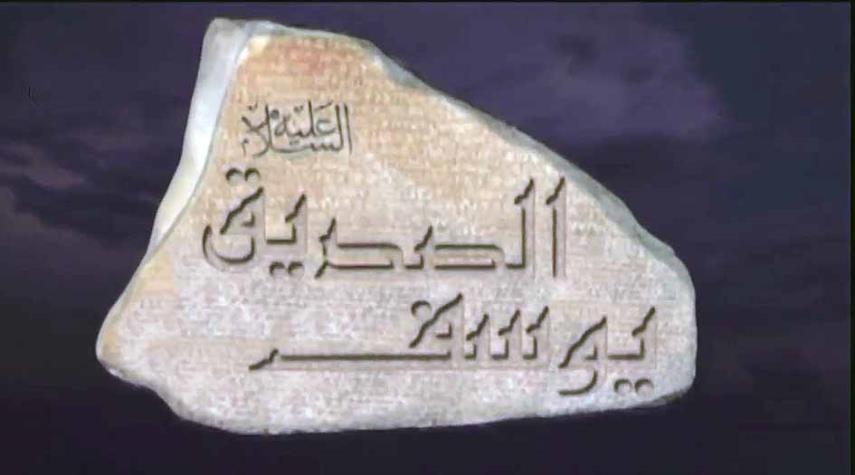 عليه السلام
الصديق
يوسف